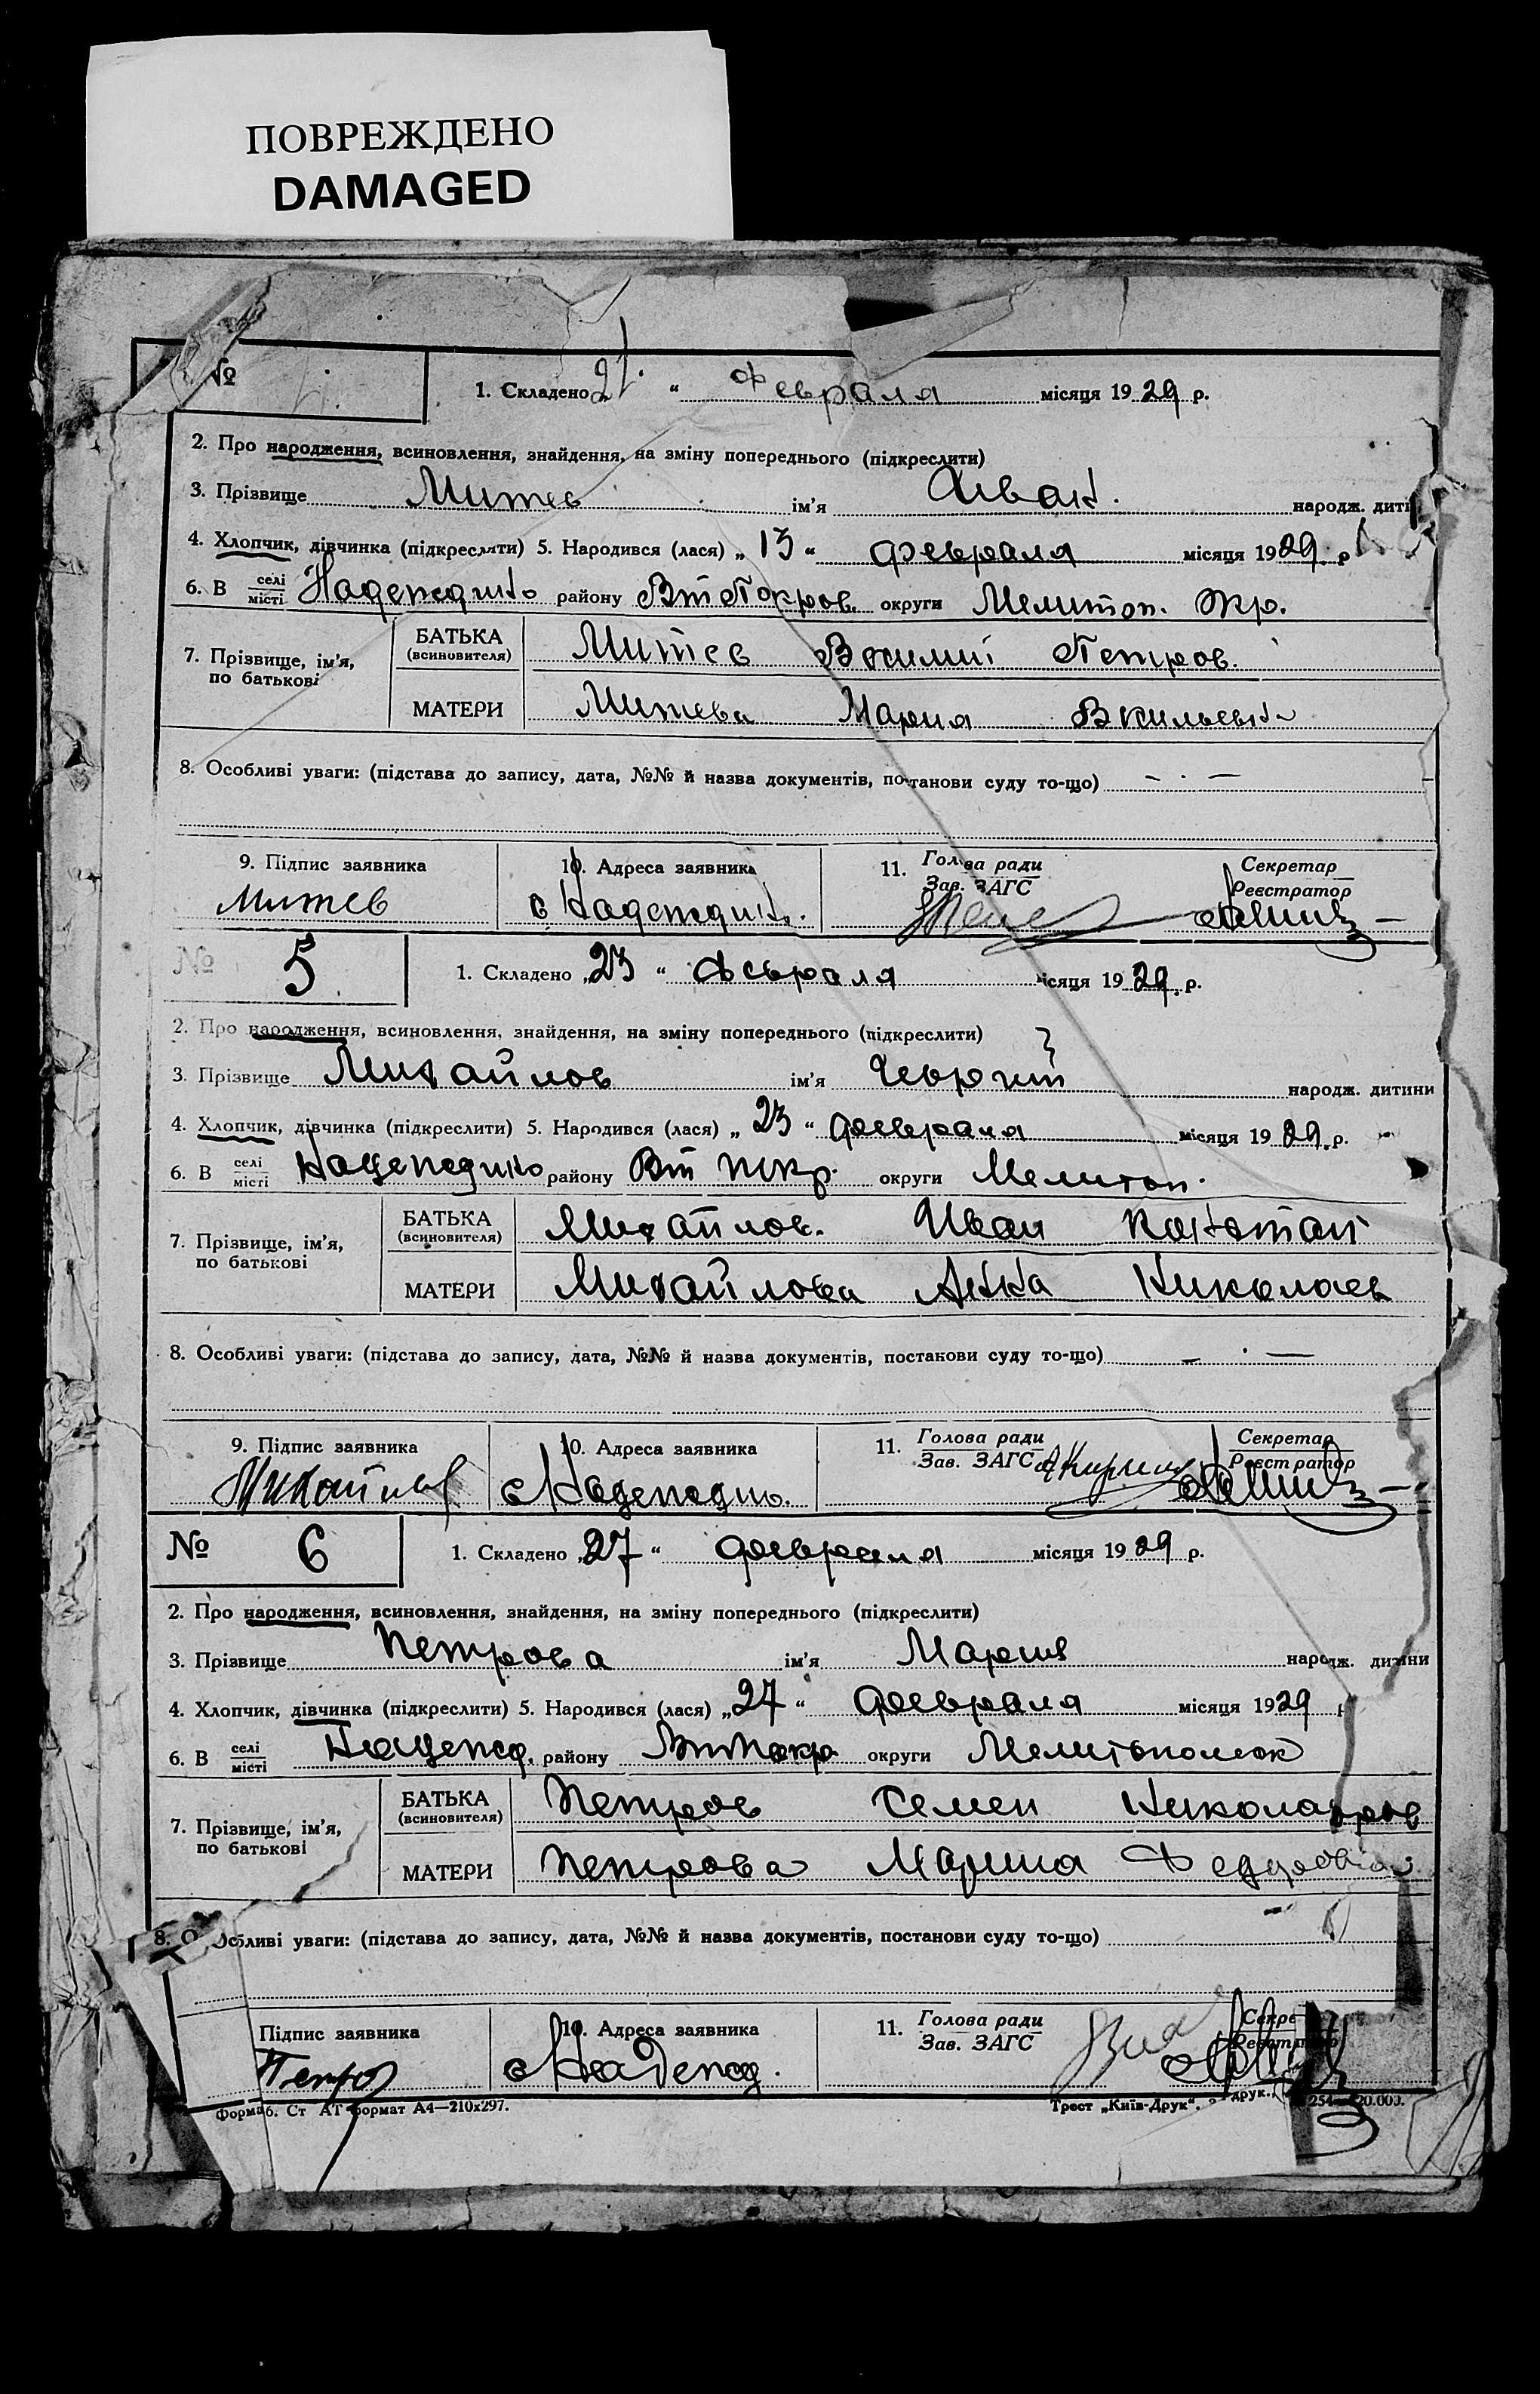 ПОВРЕЖДЕНО
DAMAGED
№
1. Складено „21“ Февраля місяця 1929 р.
2. Про народження, всиновлення, знайдення, на зміну попереднього (підкреслити)
3. Прізвище Митев ім’я Иван народж. дити
4. Хлопчик, дівчинка (підкреслити) 5. Народився (лася) „13“ февраля місяця 1929 р
6. В селі місті району округи Мелитоп. Окр.
7. Прізвище, ім’я, по батькові
БАТЬКА (всиновителя) Митев Василий Петров.
МАТЕРИ Митева Мария
8. Особливі уваги: (підстава до запису, дата, №№ й назва документів, постанови суду то-що) — . —
9. Підпис заявника 10. Адреса заявника 11. Голова ради Зав. ЗАГС Секретар Реєстратор
Митев с
№ 5
1. Складено „23“ Февраля місяця 1929 р.
2. Про народження, всиновлення, знайдення, на зміну попереднього (підкреслити)
3. Прізвище Михайлов ім’я Георгий народж. дитини
4. Хлопчик, дівчинка (підкреслити) 5. Народився (лася) „23“ февраля місяця 1929 р.
6. В селі місті району округи Мелитоп.
7. Прізвище, ім’я, по батькові
БАТЬКА (всиновителя) Михайлов. Иван
МАТЕРИ Михайлова Анна Николаев
8. Особливі уваги: (підстава до запису, дата, №№ й назва документів, постанови суду то-що) — . —
9. Підпис заявника 10. Адреса заявника 11. Голова ради Зав. ЗАГС Секретар Реєстратор
Михайлов с
№ 6
1. Складено „27“ февраля місяця 1929 р.
2. Про народження, всиновлення, знайдення, на зміну попереднього (підкреслити)
3. Прізвище Петрова ім’я Мария народж. дитини
4. Хлопчик, дівчинка (підкреслити) 5. Народився (лася) „27“ февраля місяця 1929
6. В селі місті Надежд. району округи
7. Прізвище, ім’я, по батькові
БАТЬКА (всиновителя) Петров Семен
МАТЕРИ Петрова
8. Особливі уваги: (підстава до запису, дата, №№ й назва документів, постанови суду то-що)
Підпис заявника 10. Адреса заявника 11. Голова ради Зав. ЗАГС
Петров с Надежд.
Форма 6. Ст АТ формат А4—210х297.
Трест „Київ-Друк“. друк. 254 20.000.